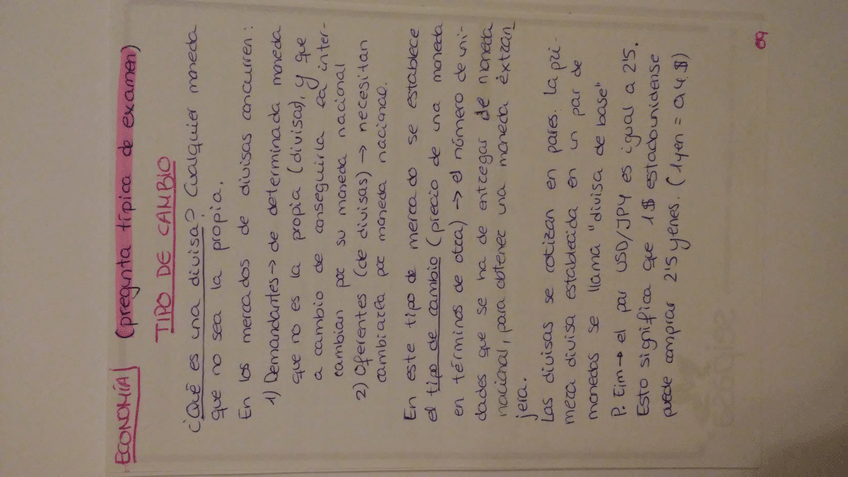 ECONOMÍA (pregunta típica de examen)
TIPO DE CAMBIO
¿Qué es una divisa? Cualquier moneda
que no sea la propia.
En los mercados de divisas concurren:
1) Demandantes → de determinada moneda
que no es la propia (divisas), y que
a cambio de conseguirla la inter-
cambian por su moneda nacional
2) Oferentes (de divisas) → necesitan
cambiarla por moneda nacional.
En este tipo de mercado se establece
el tipo de cambio (precio de una moneda
en términos de otra) → el número de uni-
dades que se ha de entregar de moneda
nacional, para obtener una moneda extran
jera.
Las divisas se cotizan en pares. La pri-
mera divisa establecida en un par de
monedas se llama "divisa de base"
P. Ejm → el par USD/JPY es igual a 2'5.
Esto significa que 1$ estadounidense
puede comprar 2'5 yenes. (1 yen = 0,4 $)